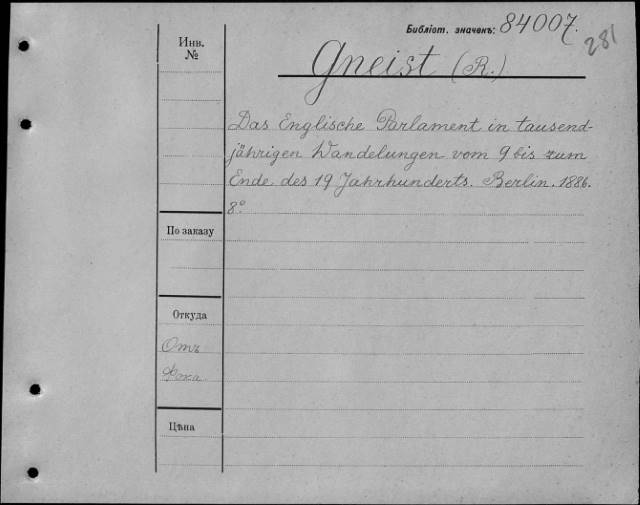 Библіот. значекъ: 84007.
281
Инв.
№
Gneist (R.)
Das Englische Parlament in tausend-
jährigen Wandelungen vom 9 bis zum
Ende des 19 Jahrhunderts. Berlin. 1886.
8º
По заказу
Откуда
Отъ
Фока
Цѣна